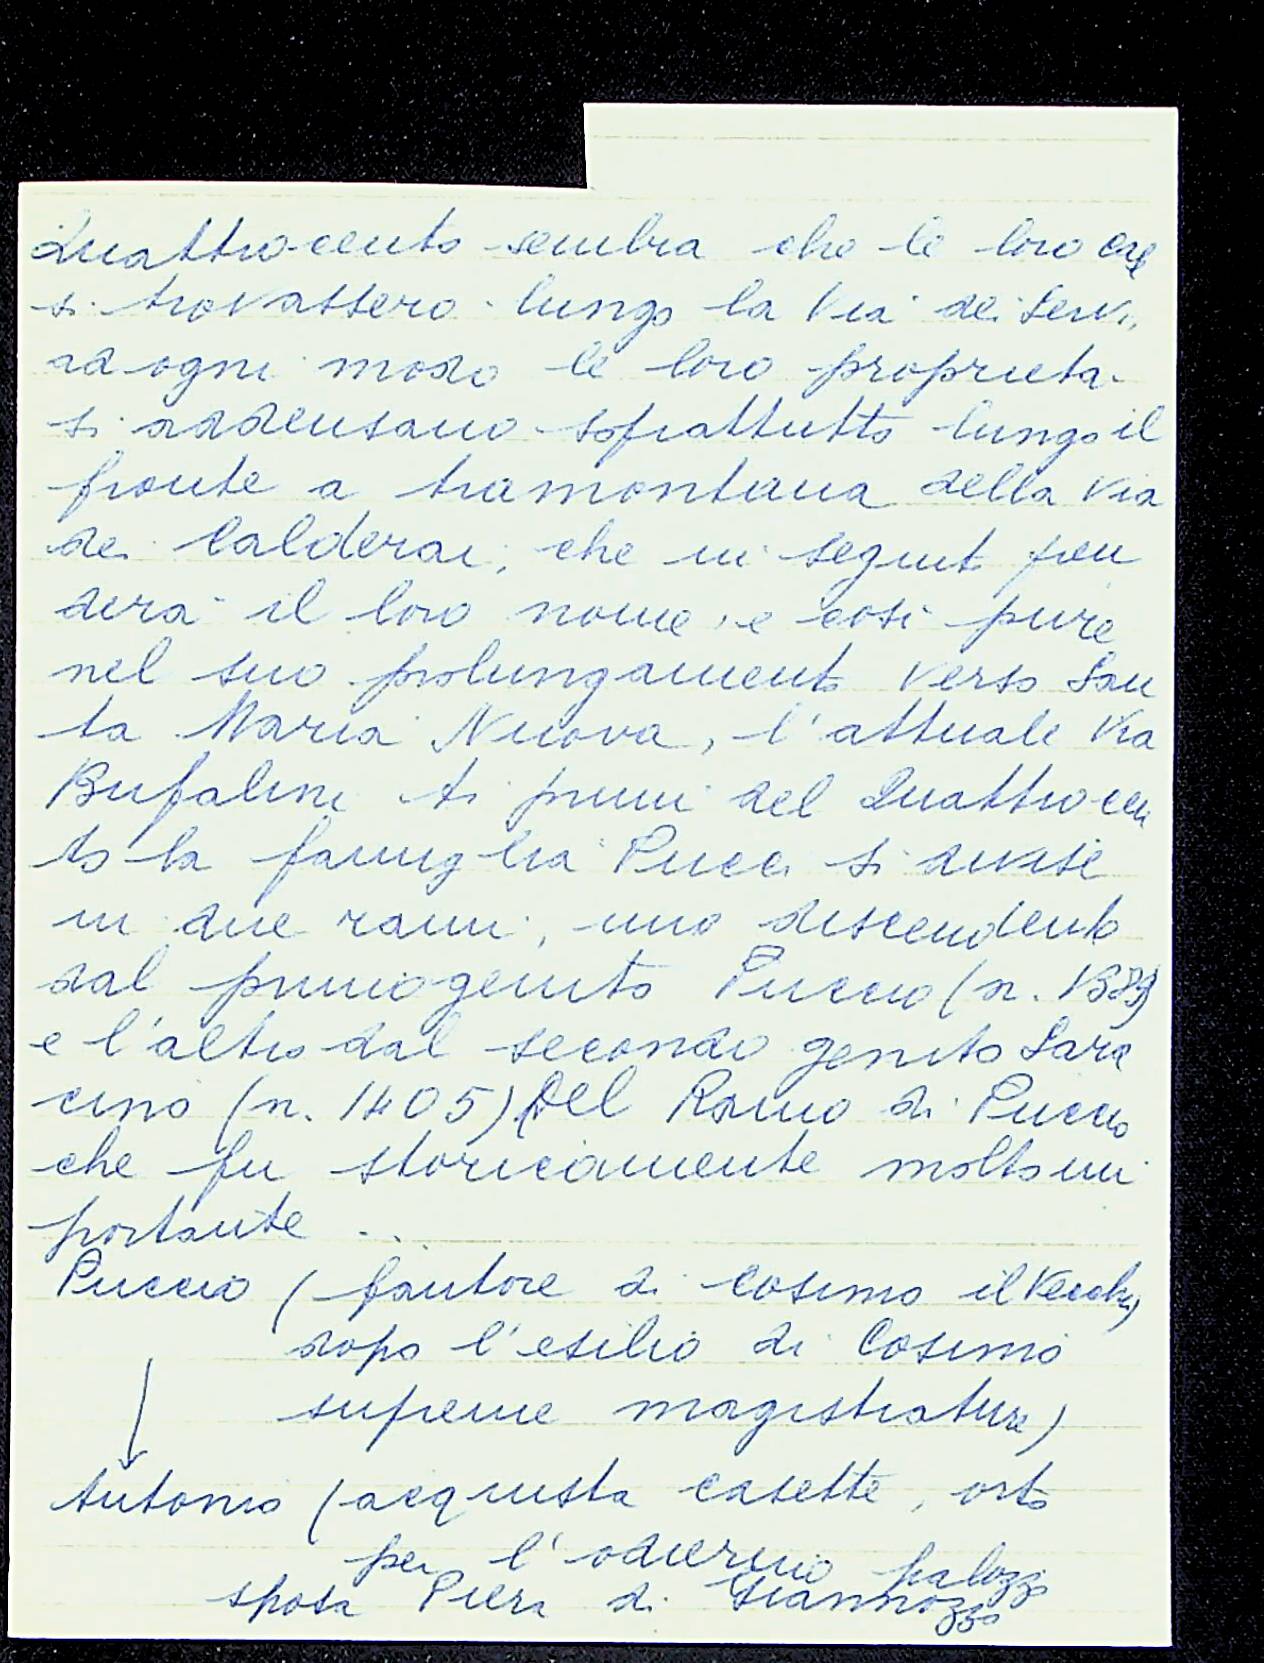 Quattrocento sembra che le loro case
si trovassero lungo la Via dei Servi,
ad ogni modo le loro proprietà
si addensano soprattutto lungo il
fronte a tramontana della Via
dei Calderai, che in seguito pren
derà il loro nome, e così pure
nel suo prolungamento verso San
ta Maria Nuova, l'attuale Via
Bufalini. Ai primi del Quattrocen
to la famiglia Pucci si divise
in due rami, uno discendente
dal primogenito Puccio (n. 1389)
e l'altro dal secondo genito Sara
cino (n. 1405) Del Ramo di Puccio
che fu storicamente molto im
portante ...
Puccio (fautore di Cosimo il Vecchio,
dopo l'esilio di Cosimo
supreme magistrature)
↓
Antonio (acquista casette, orto
per l'odierno palazzo
sposa Piera di Giannozzo